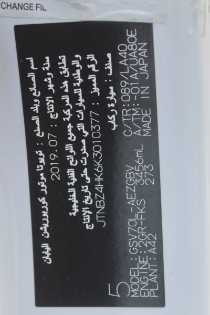 CHANGE FIL
اسم المصنع وبلد المصنع : تويوتا موتور كوربوريشن اليابان
سنة وشهر الانتاج : 2019.07
تطابق هذه المركبة جميع اللوائح الفنية الخليجية
والوطنية للسيارات التي صدرت حتى تاريخ الانتاج
الرقم المميز : JTNBZ4HK6K3010377
صنف : سيارة ركب
5
MODEL: GSV70L-AEZGBV
ENGINE: 2GR-FKS 3456mL
PLANT: A42 273
C/TR: 089/LA40
A/TM: -01A/UA80E
MADE IN JAPAN